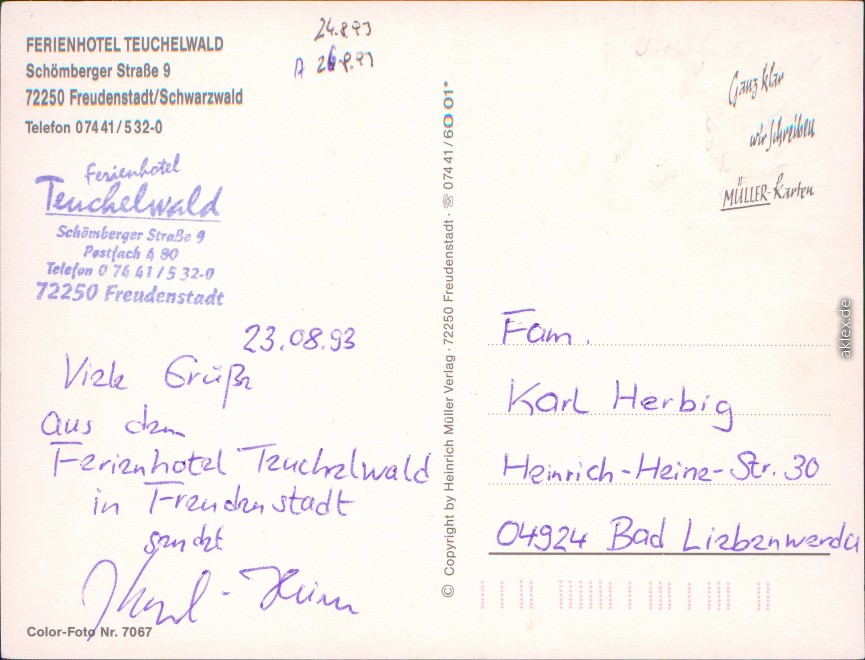 FERIENHOTEL TEUCHELWALD
Schömberger Straße 9
72250 Freudenstadt/Schwarzwald
Telefon 07441/532-0
24.8.93
A 26.8.93
Ferienhotel
Teuchelwald
Schömberger Straße 9
Postfach 4 80
Telefon 0 74 41 / 5 32-0
72250 Freudenstadt
23.08.93
Viele Grüße
aus dem
Ferienhotel Teuchelwald
in Freudenstadt
sendet
Karl-Heinz
Color-Foto Nr. 7067
© Copyright by Heinrich Müller Verlag · 72250 Freudenstadt · ☏ 07441/60 01*
Ganz klar
wir schreiben
MÜLLER-Karten
Fam.
Karl Herbig
Heinrich-Heine-Str. 30
04924 Bad Liebenwerda
aklex.de